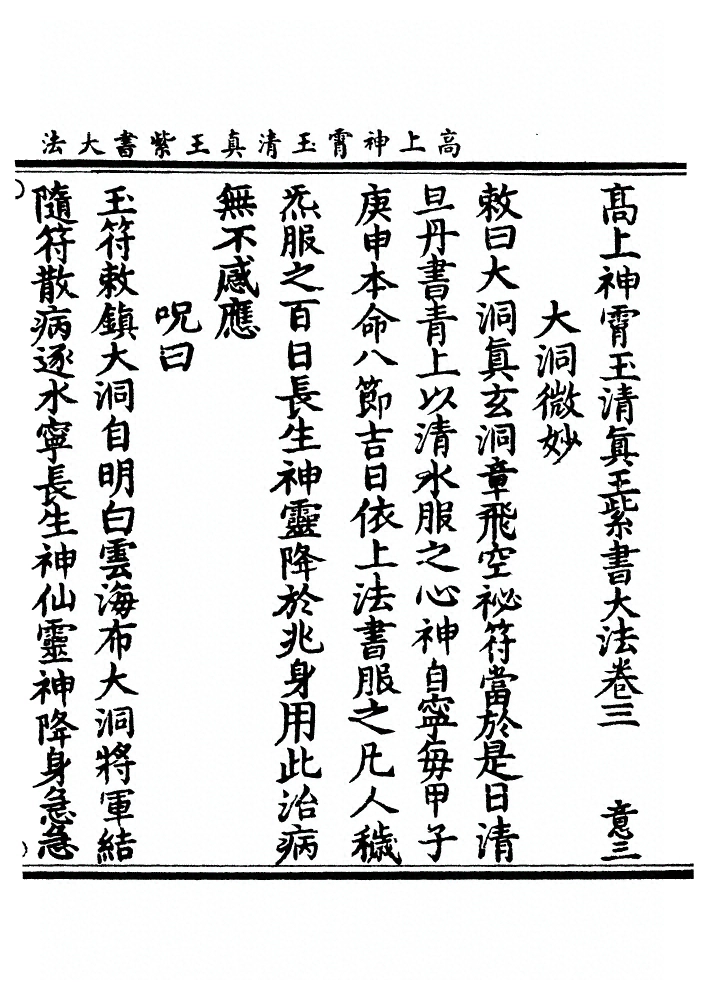 高上神霄玉清真王紫書大法
高上神霄玉清眞王紫書大法卷三　意三
大洞微妙
敕曰大洞眞玄洞章飛空祕符當於是日清
旦丹書青上以清水服之心神自寧每甲子
庚申本命八節吉日依上法書服之凡人穢
炁服之百日長生神靈降於兆身用此治病
無不感應
呪曰
玉符敕鎮大洞自明白雲海布大洞將軍結
隨符散病逐水寧長生神仙靈神降身急急